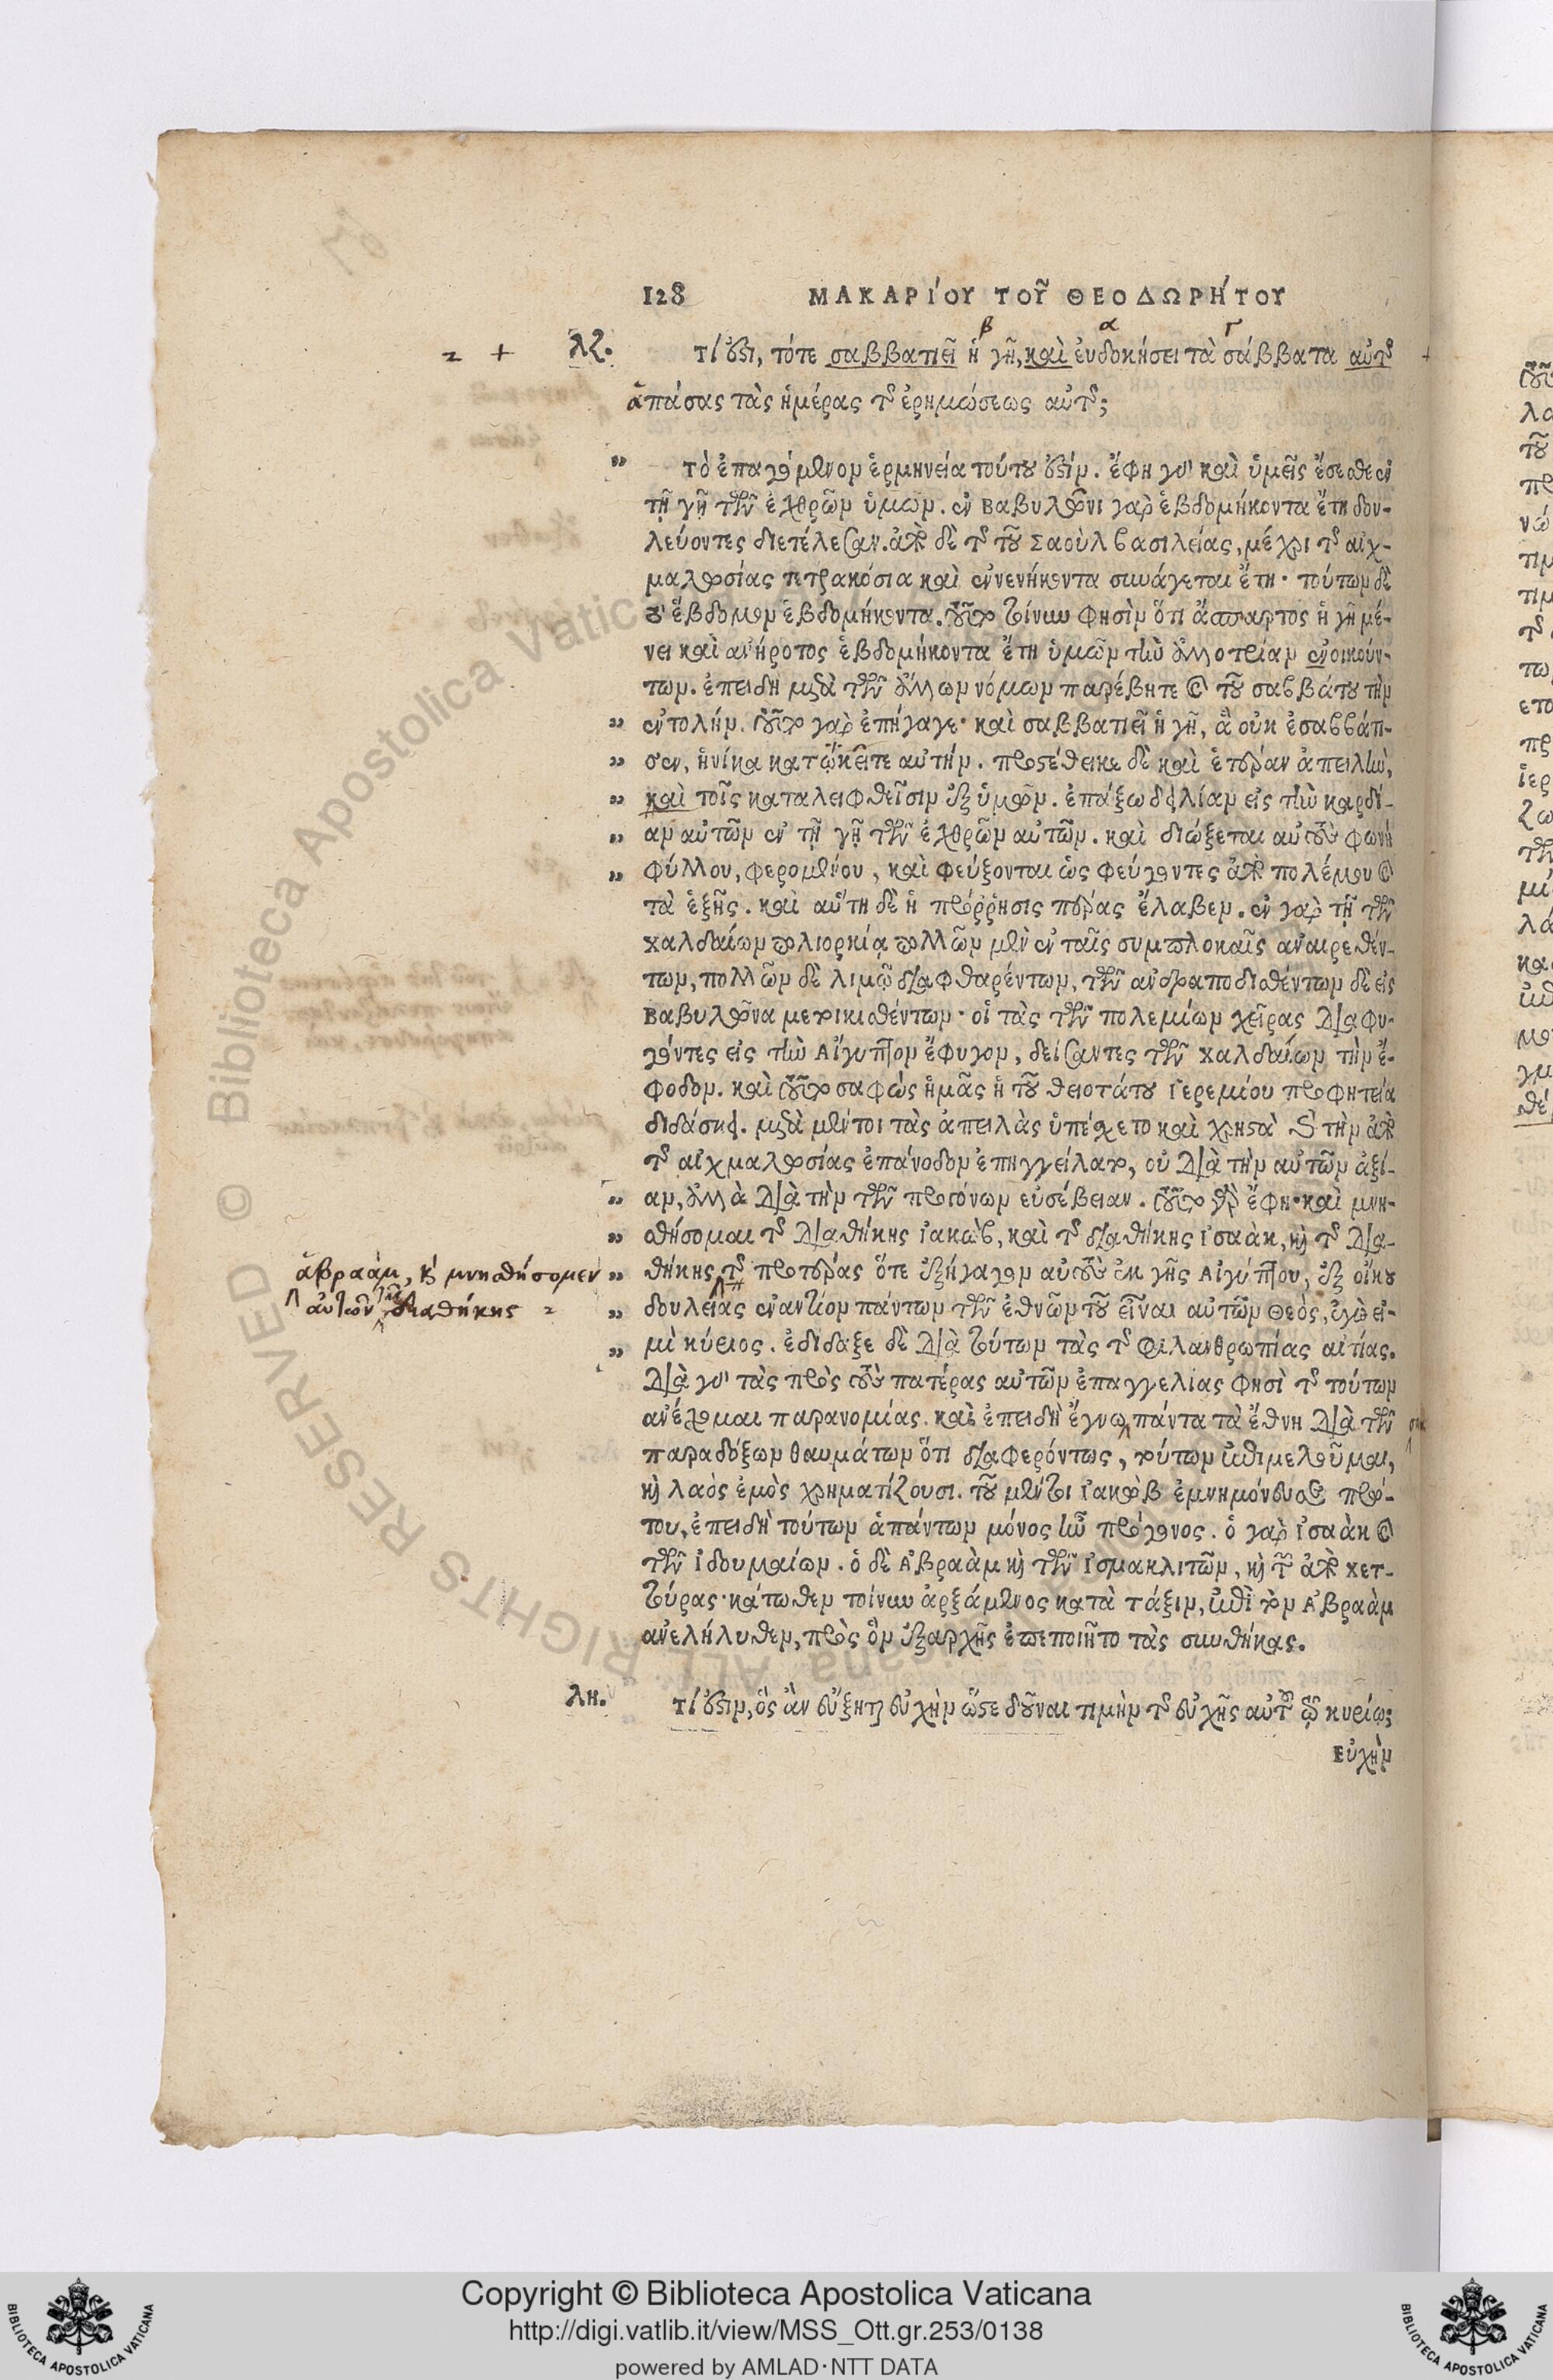 128 ΜΑΚΑΡίΟΥ ΤΟῦ ΘΕΟΔΩΡΉΤΟΥ
β α γ
2 + λζ. τί ὅξι, τότε σαββατιεῖ ἡ γῆ, καὶ ἐυδοκήσει τὰ σάββατα αὐτῆς
ἁπάσας τὰς ἡμέρας τῆς ἐρημώσεως αὐτῆς;
„ τὸ ἐπαγόμενον ἑρμηνεία τούτου ἐστίν. ἔφη γὰρ καὶ ὑμεῖς ἔσεσθε ἐν
τῇ γῇ τῶν ἐχθρῶν ὑμῶν. ἐν Βαβυλῶνι γὰρ ἑβδομήκοντα ἔτη δου-
λεύοντες διετέλεσαν. ἀπὸ δὲ τῆς τοῦ Σαοὺλ βασιλείας, μέχρι τῆς αἰχ-
μαλωσίας τετρακόσια καὶ ἐννενήκοντα συνάγεται ἔτη· τούτων δὲ
τὸ ἕβδομον ἑβδομήκοντα. οὕτω τοίνυν φησὶν ὅτι ἄσπαρτος ἡ γῆ μέ-
νει καὶ ἀνήροτος ἑβδομήκοντα ἔτη ὑμῶν τὴν ἀλλοτρίαν ἐνοικούν-
των. ἐπειδὴ μετὰ τῶν ἄλλων νόμων παρέβητε καὶ τοῦ σαββάτου τὴν
„ ἐντολήν. οὕτω γὰρ ἐπήγαγε· καὶ σαββατιεῖ ἡ γῆ, ἃ οὐκ ἐσαββάτι-
„ σεν, ἡνίκα κατῳκεῖτε αὐτήν. προστέθεικε δὲ καὶ ἑτέραν ἀπειλὴν,
„ καὶ τοῖς καταλειφθεῖσιν ἐξ ὑμῶν. ἐπάξω δειλίαν εἰς τὴν καρδί-
„ αν αὐτῶν ἐν τῇ γῇ τῶν ἐχθρῶν αὐτῶν. καὶ διώξεται αὐτοὺς φωνὴ
„ φύλλου, φερομένου, καὶ φεύξονται ὡς φεύγοντες ἀπὸ πολέμου καὶ
τὰ ἑξῆς. καὶ αὕτη δὲ ἡ πρόῤῥησις πέρας ἔλαβεν. ἐν γὰρ τῇ τῶν
χαλδαίων πολιορκίᾳ πολλῶν μὲν ἐν ταῖς συμπλοκαῖς ἀναιρεθέν-
των, πολλῶν δὲ λιμῷ διαφθαρέντων, τῶν ἀνδραποδισθέντων δὲ εἰς
Βαβυλῶνα μετοικισθέντων· οἱ τὰς τῶν πολεμίων χεῖρας διαφυ-
γόντες εἰς τὴν Αἴγυπτον ἔφυγον, δείσαντες τῶν χαλδαίων τὴν ἔ-
φοδον. καὶ οὕτω σαφῶς ἡμᾶς ἡ τοῦ θειοτάτου Ἱερεμίου προφητεία
διδάσκει. μετὰ μέντοι τὰς ἀπειλὰς ὑπέσχετο καὶ χρηστὰ καὶ τὴν ἀπὸ
τῆς αἰχμαλωσίας ἐπάνοδον ἐπηγγείλατο, οὐ διὰ τὴν αὐτῶν ἀξί-
„ αν, ἀλλὰ διὰ τὴν τῶν προγόνων εὐσέβειαν. οὕτω γὰρ ἔφη· καὶ μνη-
„ σθήσομαι τῆς διαθήκης ἰακὼβ, καὶ τῆς διαθήκης ἰσαὰκ, καὶ τῆς δια-
„ θήκης τῆς προτέρας ὅτε ἐξήγαγον αὐτοὺς ἐκ γῆς Αἰγύπτου, ἐξ οἴκου
ἀβραὰμ, καὶ μνησθήσομεν
„ δουλείας ἐναντίον πάντων τῶν ἐθνῶν τοῦ εἶναι αὐτῶν Θεὸς, ἐγώ εἰ-
αὐτῶν τῆς διαθήκης 2
„ μὶ κύριος. ἐδίδαξε δὲ διὰ τούτων τὰς τῆς φιλανθρωπίας αἰτίας.
διὰ γὰρ τὰς πρὸς τοὺς πατέρας αὐτῶν ἐπαγγελίας φησὶ τῆς τούτων
ἀνέχομαι παρανομίας. καὶ ἐπειδὴ ἔγνω πάντα τὰ ἔθνη διὰ τῶν
παραδόξων θαυμάτων ὅτι διαφερόντως, τούτων ἐπιμελοῦμαι,
καὶ λαὸς ἐμὸς χρηματίζουσι. τοῦ μέντοι ἰακὼβ ἐμνημόνευσε πρώ-
του, ἐπειδὴ τούτων ἁπάντων μόνος ἦν πρόγονος. ὁ γὰρ ἰσαὰκ καὶ
τῶν ἰδουμαίων. ὁ δὲ Ἀβραὰμ καὶ τῶν ἰσμαηλιτῶν, καὶ τῶν ἀπὸ χετ-
τούρας· κάτωθεν τοίνυν ἀρξάμενος κατὰ τάξιν, ἐπὶ τὸν Ἀβραὰμ
ἀνελήλυθεν, πρὸς ὃν ἐξαρχῆς ἐπεποίητο τὰς συνθήκας.
λη. τί ἐστιν, ὃς ἂν εὔξηται εὐχὴν ὥστε δοῦναι τιμὴν τῆς εὐχῆς αὐτοῦ τῷ κυρίῳ;
Εὐχὴν
© Biblioteca Apostolica Vaticana ALL RIGHTS RESERVED
Copyright © Biblioteca Apostolica Vaticana
http://digi.vatlib.it/view/MSS_Ott.gr.253/0138
powered by AMLAD·NTT DATA
BIBLIOTECA APOSTOLICA VATICANA
BIBLIOTECA APOSTOLICA VATICANA